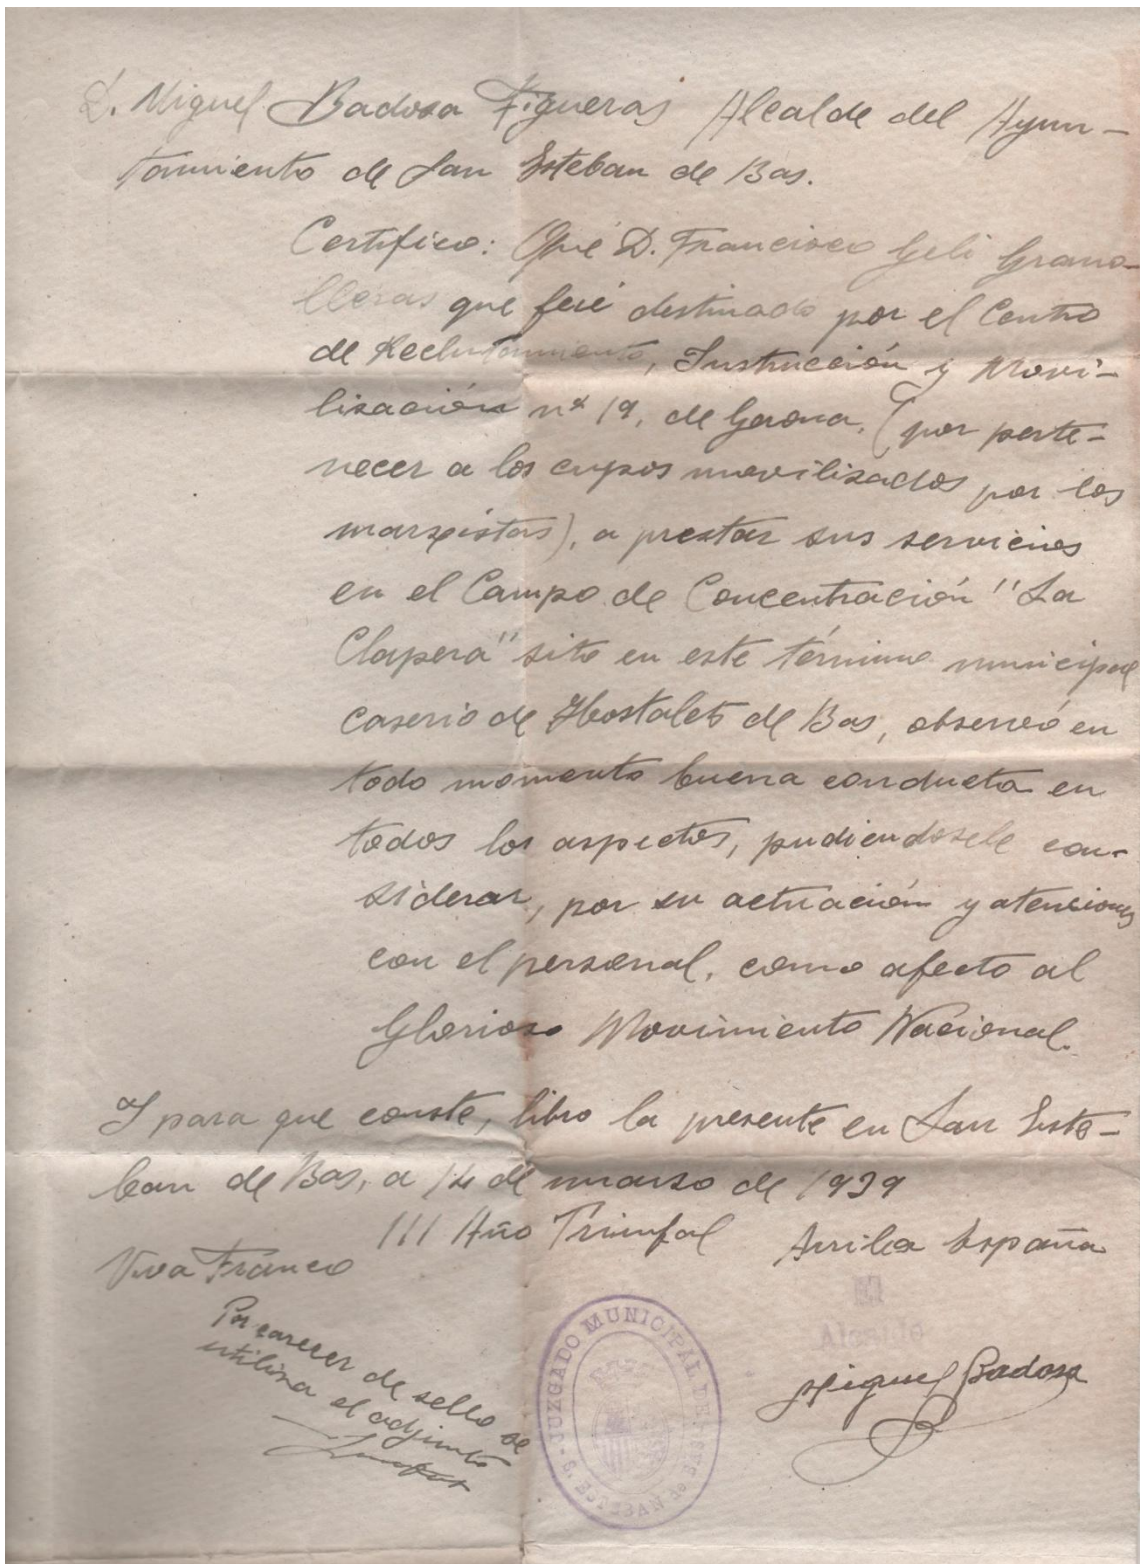 D. Miguel Badosa Figueras Alcalde del Ayun-
tamiento de San Esteban de Bas.
Certifico: Que D. Francisco Geli Grano-
lleras que fué destinado por el Centro
de Reclutamiento, Instrucción y Movi-
lisación nº 19, de Gerona, (por perte-
necer a los cupos movilisados por los
marxistas), a prestar sus servicios
en el Campo de Concentración "La
Clapera" sito en este término municipal
caserio de Hostalets de Bas, observó en
todo momento buena conducta en
todos los aspectos, pudiendosele con-
siderar, por su actuación y atenciones
con el personal, como afecto al
Glorioso Movimiento Nacional.
Y para que conste, libro la presente en San Este-
ban de Bas, a 14 de marso de 1939
III Año Triunfal Arriba España
Viva Franco
Por carecer de sello se
utilisa el adjunto
JUZGADO MUNICIPAL DE
S. ESTEBAN de BAS
El
Alcalde
Miguel Badosa